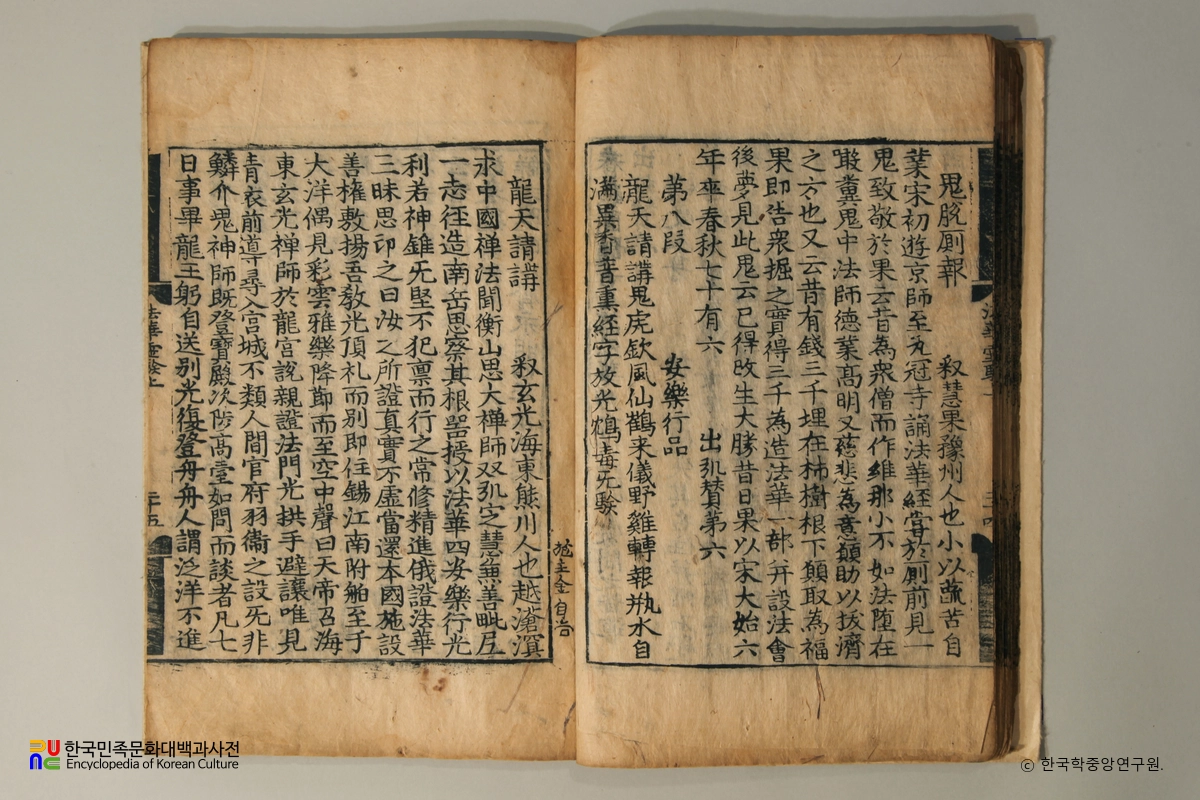 鬼脫厠報 釈慧果豫州人也小以蔬苦自
業宋初遊京師至瓦冠寺誦法華経甞於厠前見一
鬼致敬於果云昔為衆僧而作維那小不如法墮在
噉糞鬼中法師德業髙明又慈悲為意願助以拔濟
之方也又云昔有錢三千埋在柿樹根下願取為福
果即告衆掘之實得三千為造法華一部幷設法會
後夢見此鬼云已得改生大勝昔日果以宋大始六
年卒春秋七十有六 出弘賛第六
第八段 安樂行品
龍天請講鬼虎欽風仙鶴来儀野雞轉報甁水自
滿異香普熏経字放光鴆毒无驗
法華霊驗上 二十四
龍天請講 釈玄光海東熊川人也越滄溟
求中國禅法聞衡山思大禅師双弘定慧無善毗尼
一志徑造南岳思察其根噐授以法華四安樂行光
利若神錐无堅不犯禀而行之常修精進俄證法華
三昧思印之曰汝之所證真實不虛當還本國施設
善權敷揚吾敎光頂礼而別即住錫江南附舶至于
大洋偶見彩雲雅樂降節而至空中聲曰天帝召海
東玄光禅師於龍宮說親證法門光拱手避讓唯見
青衣前導尋入宮城不類人間官府羽衞之設无非
鱗介鬼神師既登寶殿次陟高堂如問而談者凡七
日事畢龍王躬自送別光復登舟舟人謂泛洋不進
法華霊驗上 二十五
施主金自
한국민족문화대백과사전
Encyclopedia of Korean Culture
ⓒ 한국학중앙연구원.